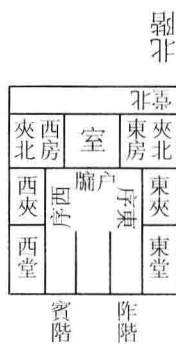 北階
北堂
夾北
西房
室
東房
夾北
户牖
西夾
西序
東序
東夾
西堂
東堂
賓階
阼階